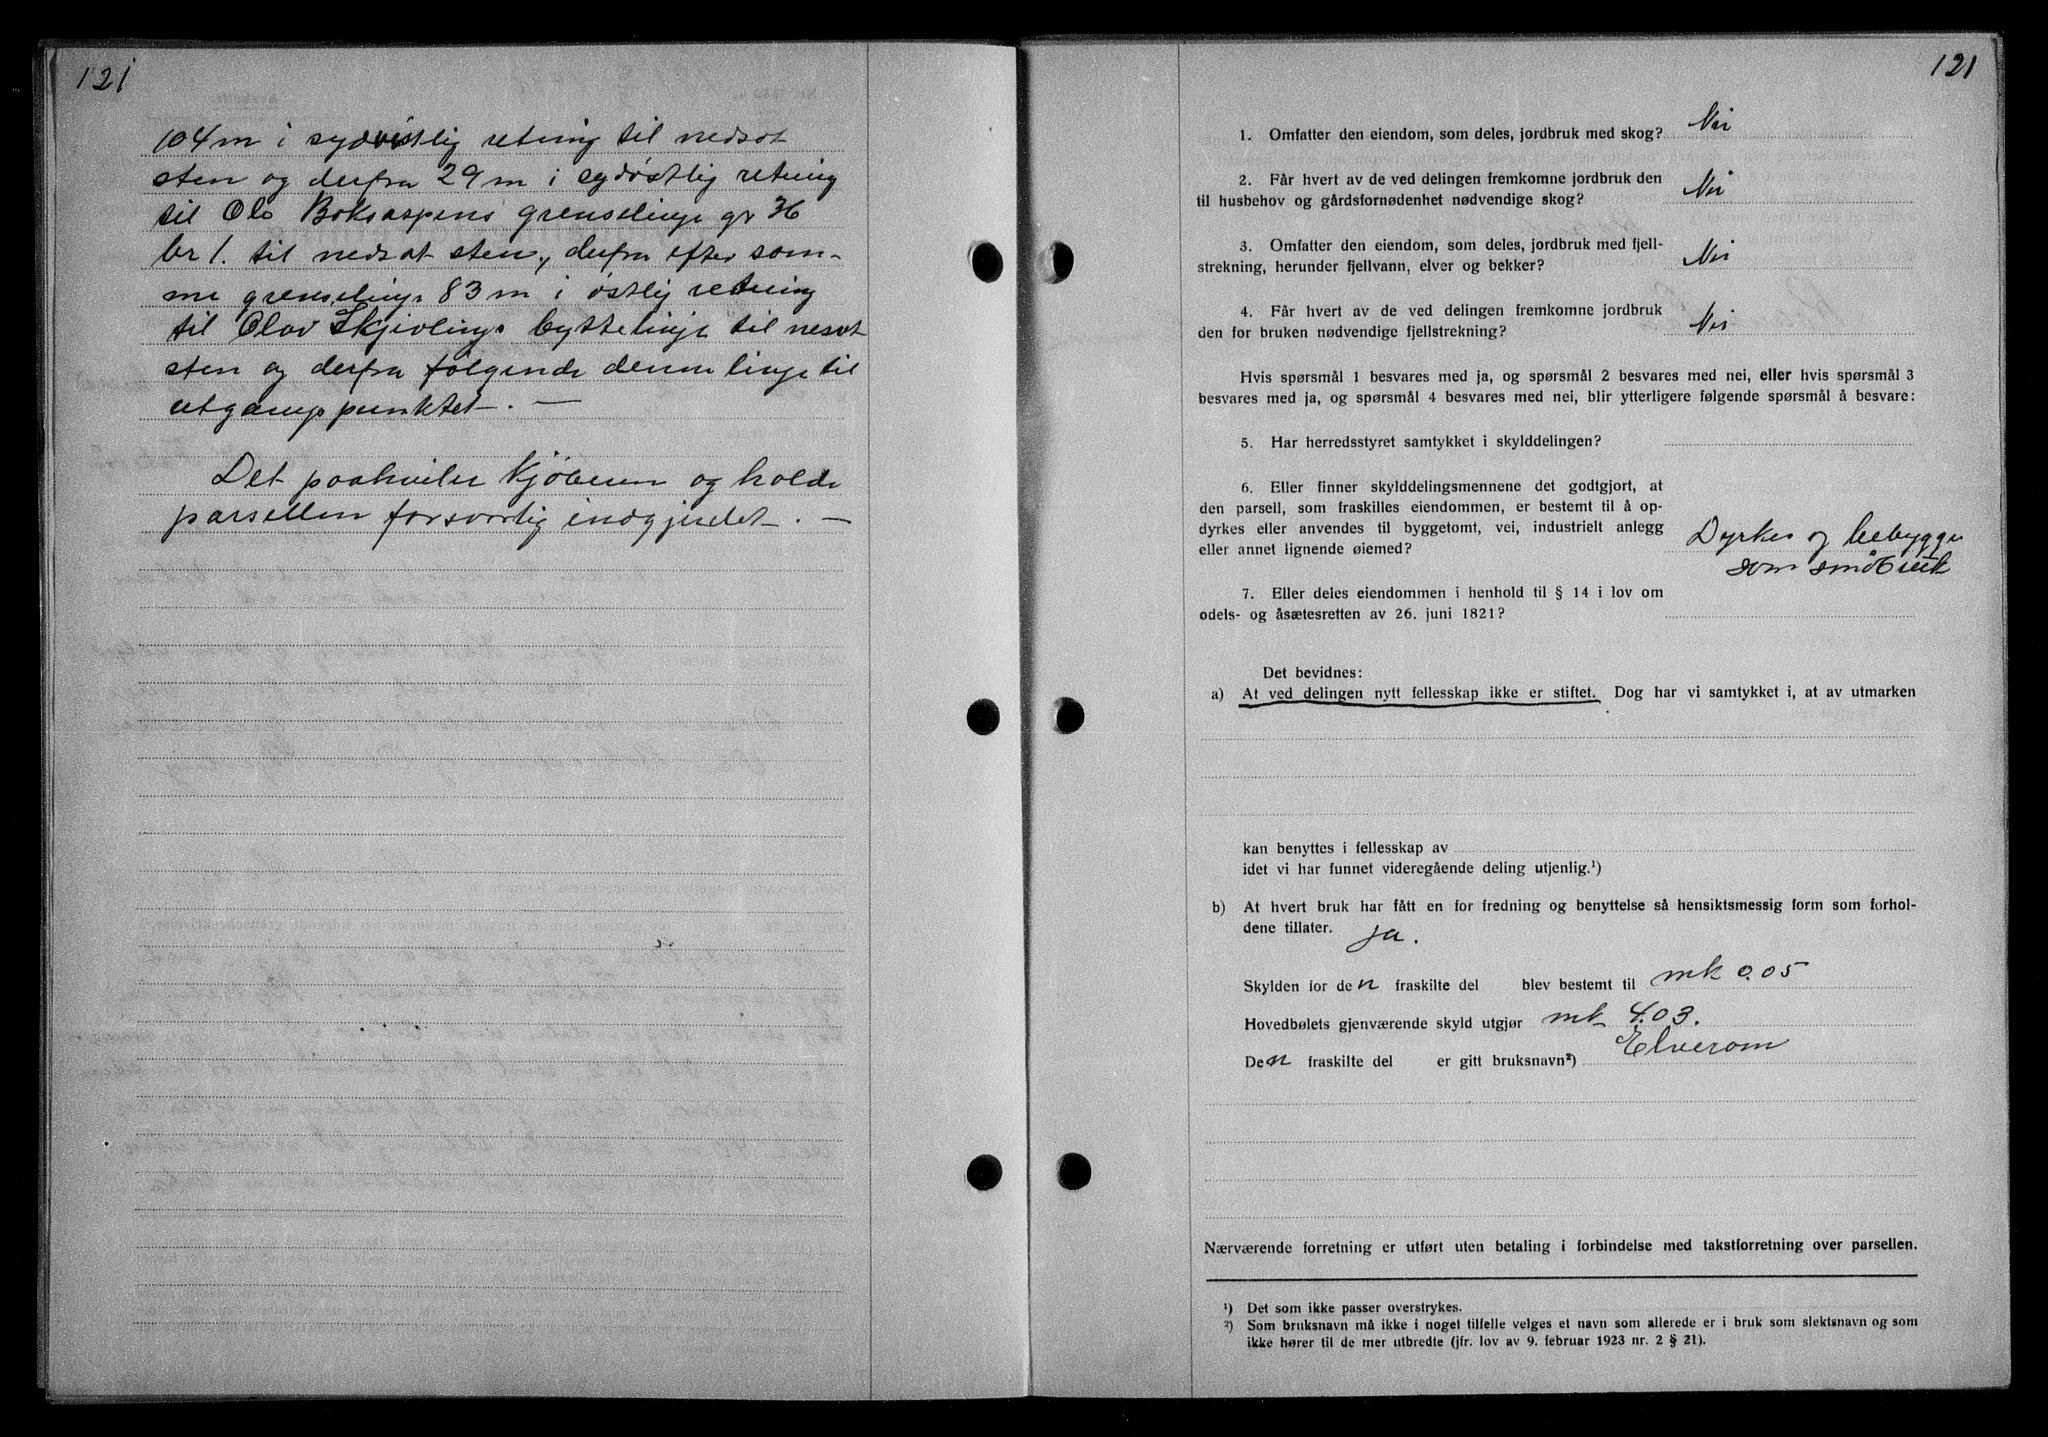 121
104 m i sydvestlig retning til nedsat
sten og derfra 29 m i sydøstlig retning
til Ole Boksaspens grenselinje gr 36
br 1. til nedsat sten, derfra efter sam-
me grenselinje 83 m i østlig retning
til Olav Skjevlings byttelinje til nesat
sten og derfra følgende denne linje til
utgangspunktet. —
Det paahviler kjøberen og holde
parsellen forsvarlig indgjerdet. —
121
1. Omfatter den eiendom, som deles, jordbruk med skog? Nei
2. Får hvert av de ved delingen fremkomne jordbruk den
til husbehov og gårdsfornødenhet nødvendige skog? Nei
3. Omfatter den eiendom, som deles, jordbruk med fjell-
strekning, herunder fjellvann, elver og bekker? Nei
4. Får hvert av de ved delingen fremkomne jordbruk
den for bruken nødvendige fjellstrekning? Nei
Hvis spørsmål 1 besvares med ja, og spørsmål 2 besvares med nei, eller hvis spørsmål 3
besvares med ja, og spørsmål 4 besvares med nei, blir ytterligere følgende spørsmål å besvare:
5. Har herredsstyret samtykket i skylddelingen?
6. Eller finner skylddelingsmennene det godtgjort, at
den parsell, som fraskilles eiendommen, er bestemt til å op-
dyrkes eller anvendes til byggetomt, vei, industrielt anlegg
eller annet lignende øiemed? Dyrkes og bebygges
som småbruk
7. Eller deles eiendommen i henhold til § 14 i lov om
odels- og åsætesretten av 26. juni 1821?
Det bevidnes:
a) At ved delingen nytt fellesskap ikke er stiftet. Dog har vi samtykket i, at av utmarken
kan benyttes i fellesskap av
idet vi har funnet videregående deling utjenlig.¹)
b) At hvert bruk har fått en for fredning og benyttelse så hensiktsmessig form som forhol-
dene tillater. ja.
Skylden for den fraskilte del blev bestemt til mk 0.05
Hovedbølets gjenværende skyld utgjør mk 4.03.
Den fraskilte del er gitt bruksnavn²) Elverom
Nærværende forretning er utført uten betaling i forbindelse med takstforretning over parsellen.
¹) Det som ikke passer overstrykes.
²) Som bruksnavn må ikke i noget tilfelle velges et navn som allerede er i bruk som slektsnavn og som
ikke hører til de mer utbredte (jfr. lov av 9. februar 1923 nr. 2 § 21).